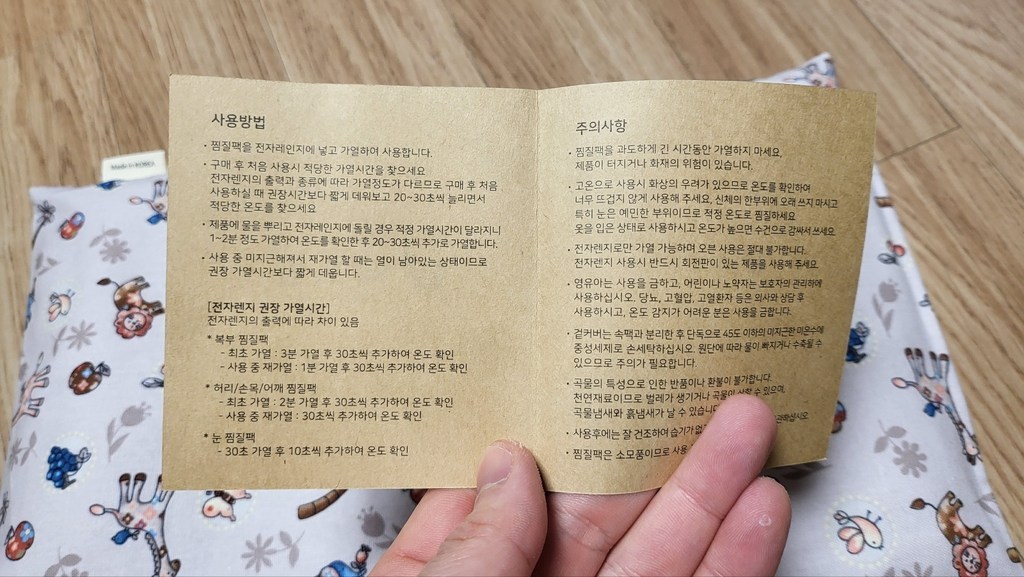 Made in KOREA
사용방법
• 찜질팩을 전자레인지에 넣고 가열하여 사용합니다.
• 구매 후 처음 사용시 적당한 가열시간을 찾으세요
전자렌지의 출력과 종류에 따라 가열정도가 다르므로 구매 후 처음
사용하실 때 권장시간보다 짧게 데워보고 20~30초씩 늘리면서
적당한 온도를 찾으세요
• 제품에 물을 뿌리고 전자레인지에 돌릴 경우 적정 가열시간이 달라지니
1~2분 정도 가열하여 온도를 확인한 후 20~30초씩 추가로 가열합니다.
• 사용 중 미지근해져서 재가열 할 때는 열이 남아있는 상태이므로
권장 가열시간보다 짧게 데웁니다.
[전자렌지 권장 가열시간]
전자렌지의 출력에 따라 차이 있음
* 복부 찜질팩
- 최초 가열 : 3분 가열 후 30초씩 추가하여 온도 확인
- 사용 중 재가열 : 1분 가열 후 30초씩 추가하여 온도 확인
* 허리/손목/어깨 찜질팩
- 최초 가열 : 2분 가열 후 30초씩 추가하여 온도 확인
- 사용 중 재가열 : 30초씩 추가하여 온도 확인
* 눈 찜질팩
- 30초 가열 후 10초씩 추가하여 온도 확인
주의사항
• 찜질팩을 과도하게 긴 시간동안 가열하지 마세요.
제품이 터지거나 화재의 위험이 있습니다.
• 고온으로 사용시 화상의 우려가 있으므로 온도를 확인하여
너무 뜨겁지 않게 사용해 주세요. 신체의 한부위에 오래 쓰지 마시고
특히 눈은 예민한 부위이므로 적정 온도로 찜질하세요
옷을 입은 상태로 사용하시고 온도가 높으면 수건으로 감싸서 쓰세요.
• 전자렌지로만 가열 가능하며 오븐 사용은 절대 불가합니다.
전자렌지 사용시 반드시 회전판이 있는 제품을 사용해 주세요.
• 영유아는 사용을 금하고, 어린이나 노약자는 보호자의 관리하에
사용하십시오. 당뇨, 고혈압, 고열환자 등은 의사와 상담 후
사용하시고, 온도 감지가 어려운 분은 사용을 금합니다.
• 겉커버는 속팩과 분리한 후 단독으로 45도 이하의 미지근한 미온수에
중성세제로 손세탁하십시오. 원단에 따라 물이 빠지거나 수축될 수
있으므로 주의가 필요합니다.
• 곡물의 특성으로 인한 반품이나 환불이 불가합니다.
천연재료이므로 벌레가 생기거나 곡물이 상할 수 있으며,
곡물냄새와 흙냄새가 날 수 있습니다
• 사용후에는 잘 건조하여 습기가
• 찜질팩은 소모품이므로 사용